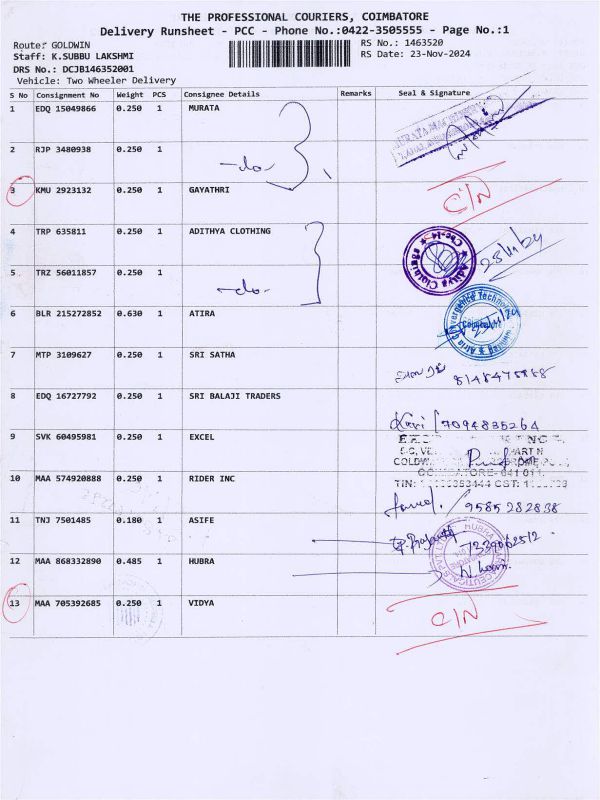 THE PROFESSIONAL COURIERS, COIMBATORE
Delivery Runsheet - PCC - Phone No.:0422-3505555 - Page No.:1
Route: GOLDWIN
RS No.: 1463520
Staff: K.SUBBU LAKSHMI
RS Date: 23-Nov-2024
DRS No.: DCJB146352001
Vehicle: Two Wheeler Delivery
S No Consignment No Weight PCS Consignee Details Remarks Seal & Signature
1 EDQ 15049866 0.250 1 MURATA
2 RJP 3480938 0.250 1 -do-
3 KMU 2923132 0.250 1 GAYATHRI C/N
4 TRP 635811 0.250 1 ADITHYA CLOTHING
5 TRZ 56011857 0.250 1 -do-
6 BLR 215272852 0.630 1 ATIRA
7 MTP 3109627 0.250 1 SRI SATHA
8 EDQ 16727792 0.250 1 SRI BALAJI TRADERS 7094835264
9 SVK 60495981 0.250 1 EXCEL
10 MAA 574920888 0.250 1 RIDER INC 9585282838
11 TNJ 7501485 0.180 1 ASIFE
12 MAA 868332890 0.485 1 HUBRA
13 MAA 705392685 0.250 1 VIDYA C/N